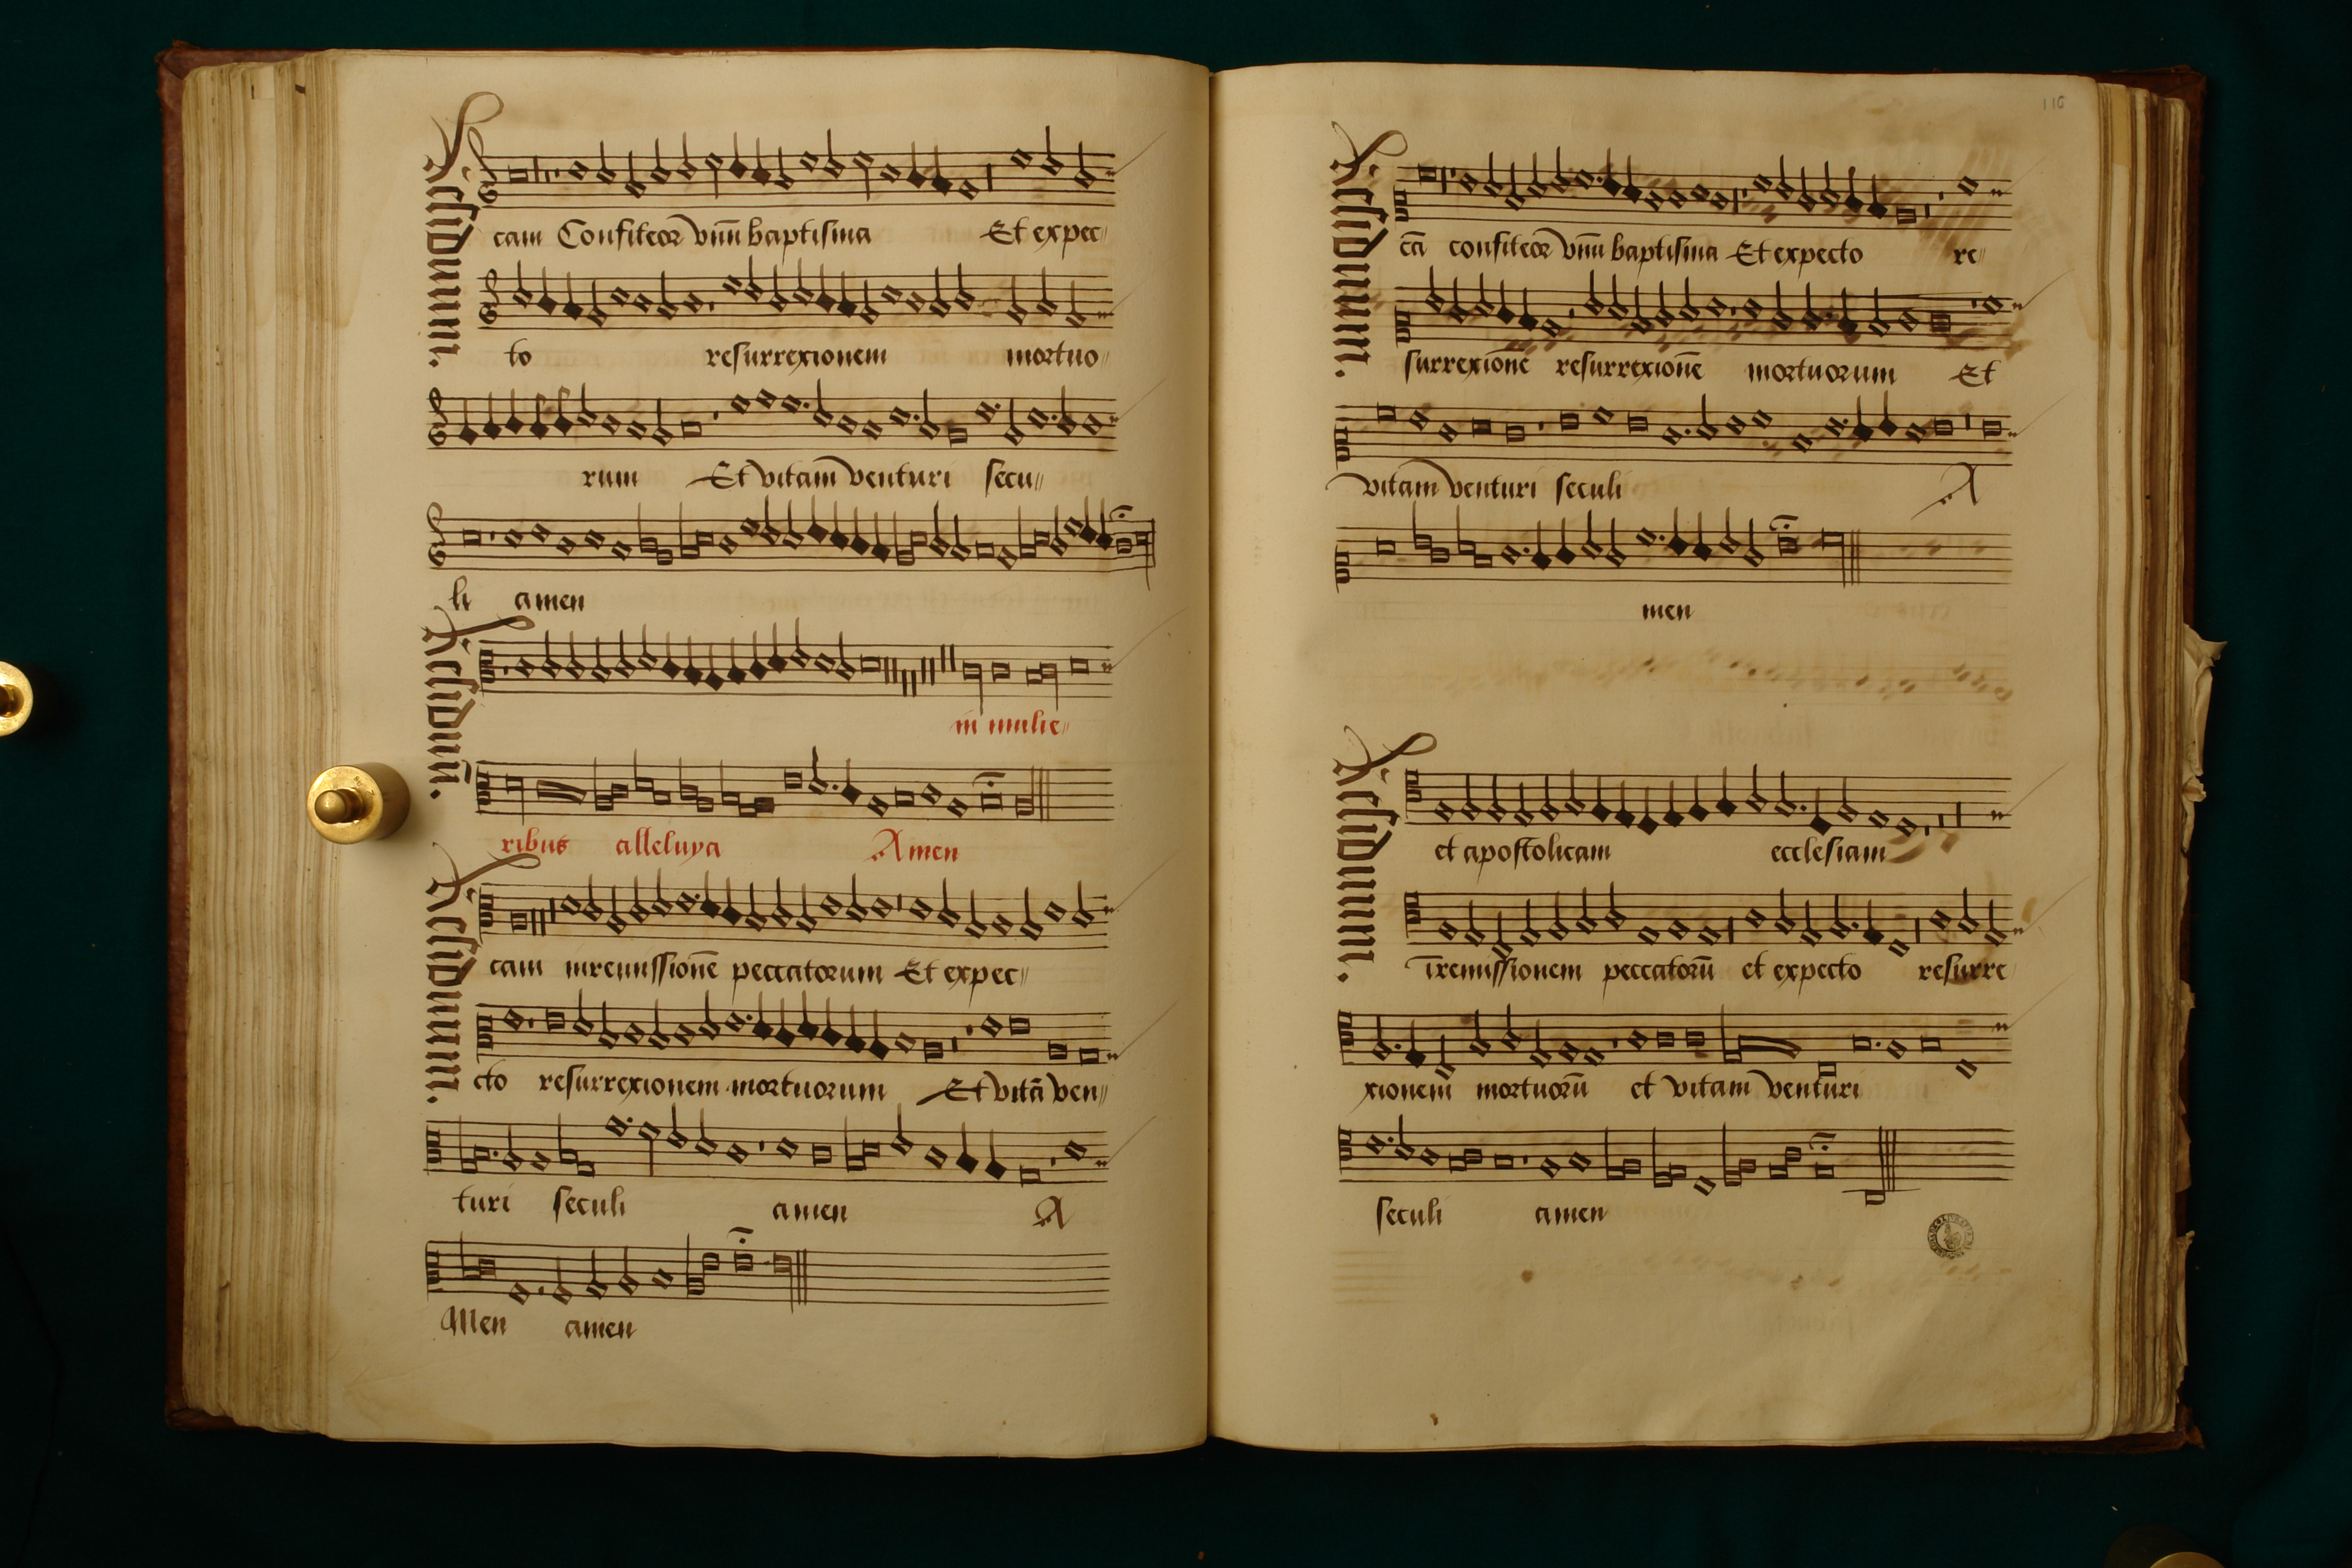 Residuum.
cam Confiteor vnū baptisma Et expec
to resurrexionem mortuo
rum Et vitam venturi secu
li amen
Residuū.
in mulie
ribus alleluya Amen
Residuum.
cam inremissionē peccatorum Et expec
cto resurrexionem mortuorum Et vitā ven
turi seculi amen A
Men amen
116
Residuum.
cā confiteor vnū baptisma Et expecto re
surrexionē resurrexionē mortuorum Et
vitam venturi seculi A
men
Residuum.
et apostolicam ecclesiam
īremissionem peccatorū et expecto resurre
xionem mortuorū et vitam venturi
seculi amen